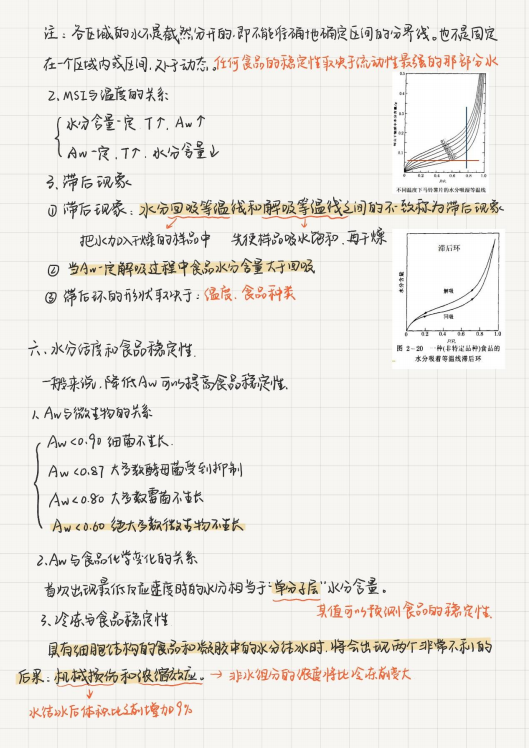 注：各区域的水不是截然分开的，即不能准确地确定区间的分界线。也不是固定
在一个区域内或区间，处于动态。任何食品的稳定性取决于流动性最强的那部分水
2. MSI与温度的关系
水分含量一定 T↑，Aw↑
Aw一定，T↑，水分含量↓
不同温度下马铃薯片的水分吸湿等温线
3. 滞后现象
① 滞后现象：水分回吸等温线和解吸等温线之间的不一致称为滞后现象
把水加入干燥的样品中 先使样品吸水饱和，再干燥
② 当Aw一定解吸过程中食品水分含量大于回吸
③ 滞后环的形状取决于：温度、食品种类
滞后环
水分含量
解吸
回吸
0 0.2 0.4 0.6 0.8 1.0
P/P0
图 2-20 一种(非特定品种)食品的
水分吸着等温线滞后环
六、水分活度和食品稳定性.
一般来说，降低Aw可以提高食品稳定性.
1. Aw与微生物的关系
Aw<0.90 细菌不生长.
Aw<0.87 大多数酵母菌受到抑制
Aw<0.80 大多数霉菌不生长
Aw<0.60 绝大多数微生物不生长
2. Aw与食品化学变化的关系
首次出现最低反应速度时的水分相当于"单分子层"水分含量。
其值可以预测食品的稳定性.
3. 冷冻与食品稳定性
具有细胞结构的食品和凝胶中的水分结冰时，将会出现两个非常不利的
后果：机械损伤和浓缩效应。→ 非水组分的浓度将比冷冻前变大
水结冰后体积比之前增加9%